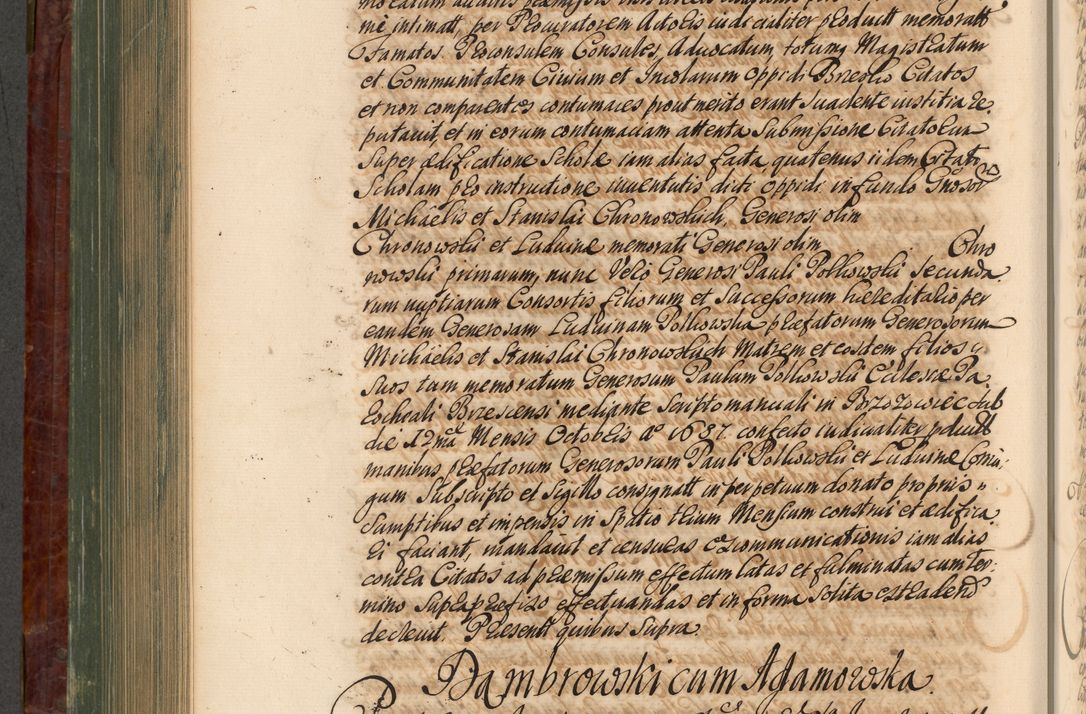 me intimatt, per Procuratorem Actoris iudicialiter produxit memoratt
Famatos Proconsulem Consules, Advocatum, totumq Magistratum
et Communitatem Civium et Incolarum Oppidi Brzesko Citatos
et non comparentes contumaces prout merito erant suadente iustitia re-
putavit, et in eorum contumaciam attenta Submissione Citatorum
Super ædificatione Scholæ iam alias facta, quatenus iidem Citati
Scholam pro instructione iuventutis dicti Oppidi in fundo Gnosor
Michaelis et Stanislai Chronowskich, Generosi olim
Chronowskii et Luduinæ memorati Generosi olim Chro
nowskii primarum, nunc Vero Generosi Pauli Polkowskii secunda
rum nuptiarum Consortis filiorum et Successorum hæreditario per
eandem Generosam Luduinam Polkowska præfatorum Generosorum
Michaelis et Stanislai Chronowskich Matrem et eosdem filios
suos tum memoratum Generosum Paulum Polkowskii Ecclesiæ Pa
rochcali Brzescensi mediante Scripto manuali in Brzozowiec sub
die 12ma Mensis Octobris Ao 1687. confecto
manibus præfatorum Generosorum Pauli Polkowskii et Luduinæ Coniu-
gum Subscripto et Sigillo consignatt in perpetuum donato propriis
Sumptibus et impensis in Spatio trium Mensium construi et ædifica
ri faciant, mandavit et censuras excommunicationis iam alias
contra Citatos ad præmissum effectum latas et fulminatas cum Ter-
mino Supra præfixo effectuandas et in forma Solita extradend
decrevit. Præsentt quibus Supra.
Dąmbrowski cum Adamowska.